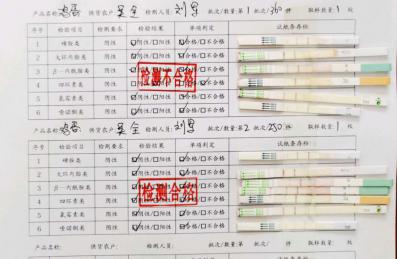 产品名称: 鸡蛋 供货农户: 吴全 检测人员: 刘军 批次/数量: 第1/360 件 取样数量: 1 枚
序号 检测项目 检测要求 检验结果 单项判定 试纸条存档
1 磺胺类 阴性 ☑阴性/☐阳性 ☑合格/☐不合格
2 大环内酯类 阴性 ☑阴性/☐阳性 ☑合格/☐不合格
3 β－内酰胺类 阴性 ☑阴性/☐阳性 ☑合格/☐不合格
4 四环素类 阴性
5 氯霉素类 阴性 ☑阴性/☐阳性 ☑合格/☐不合格
6 喹诺酮类 阴性 ☑阴性/☐阳性 ☑合格/☐不合格
检测不合格
产品名称: 鸡蛋 供货农户: 吴全 检测人员: 刘军 批次/数量: 第2/250 件 取样数量: 1 枚
序号 检测项目 检测要求 检验结果 单项判定 试纸条存档
1 磺胺类 阴性 ☑阴性/☐阳性 ☑合格/☐不合格
2 大环内酯类 阴性 ☑阴性/☐阳性 ☑合格/☐不合格
3 β－内酰胺类 阴性 ☑阴性/☐阳性 ☑合格/☐不合格
4 四环素类 阴性 ☑阴性/☐阳性 ☑合格/☐不合格
5 氯霉素类 阴性 ☑阴性/☐阳性 ☑合格/☐不合格
6 喹诺酮类 阴性 ☑阴性/☐阳性 ☑合格/☐不合格
检测合格
产品名称: 供货农户: 检测人员: 批次/数量: 第 / 件 取样数量: 枚